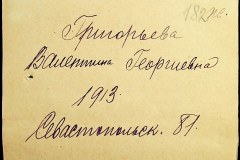 Григорьева
Валентина Георгиевна
1913.
Севастопольск. 81.